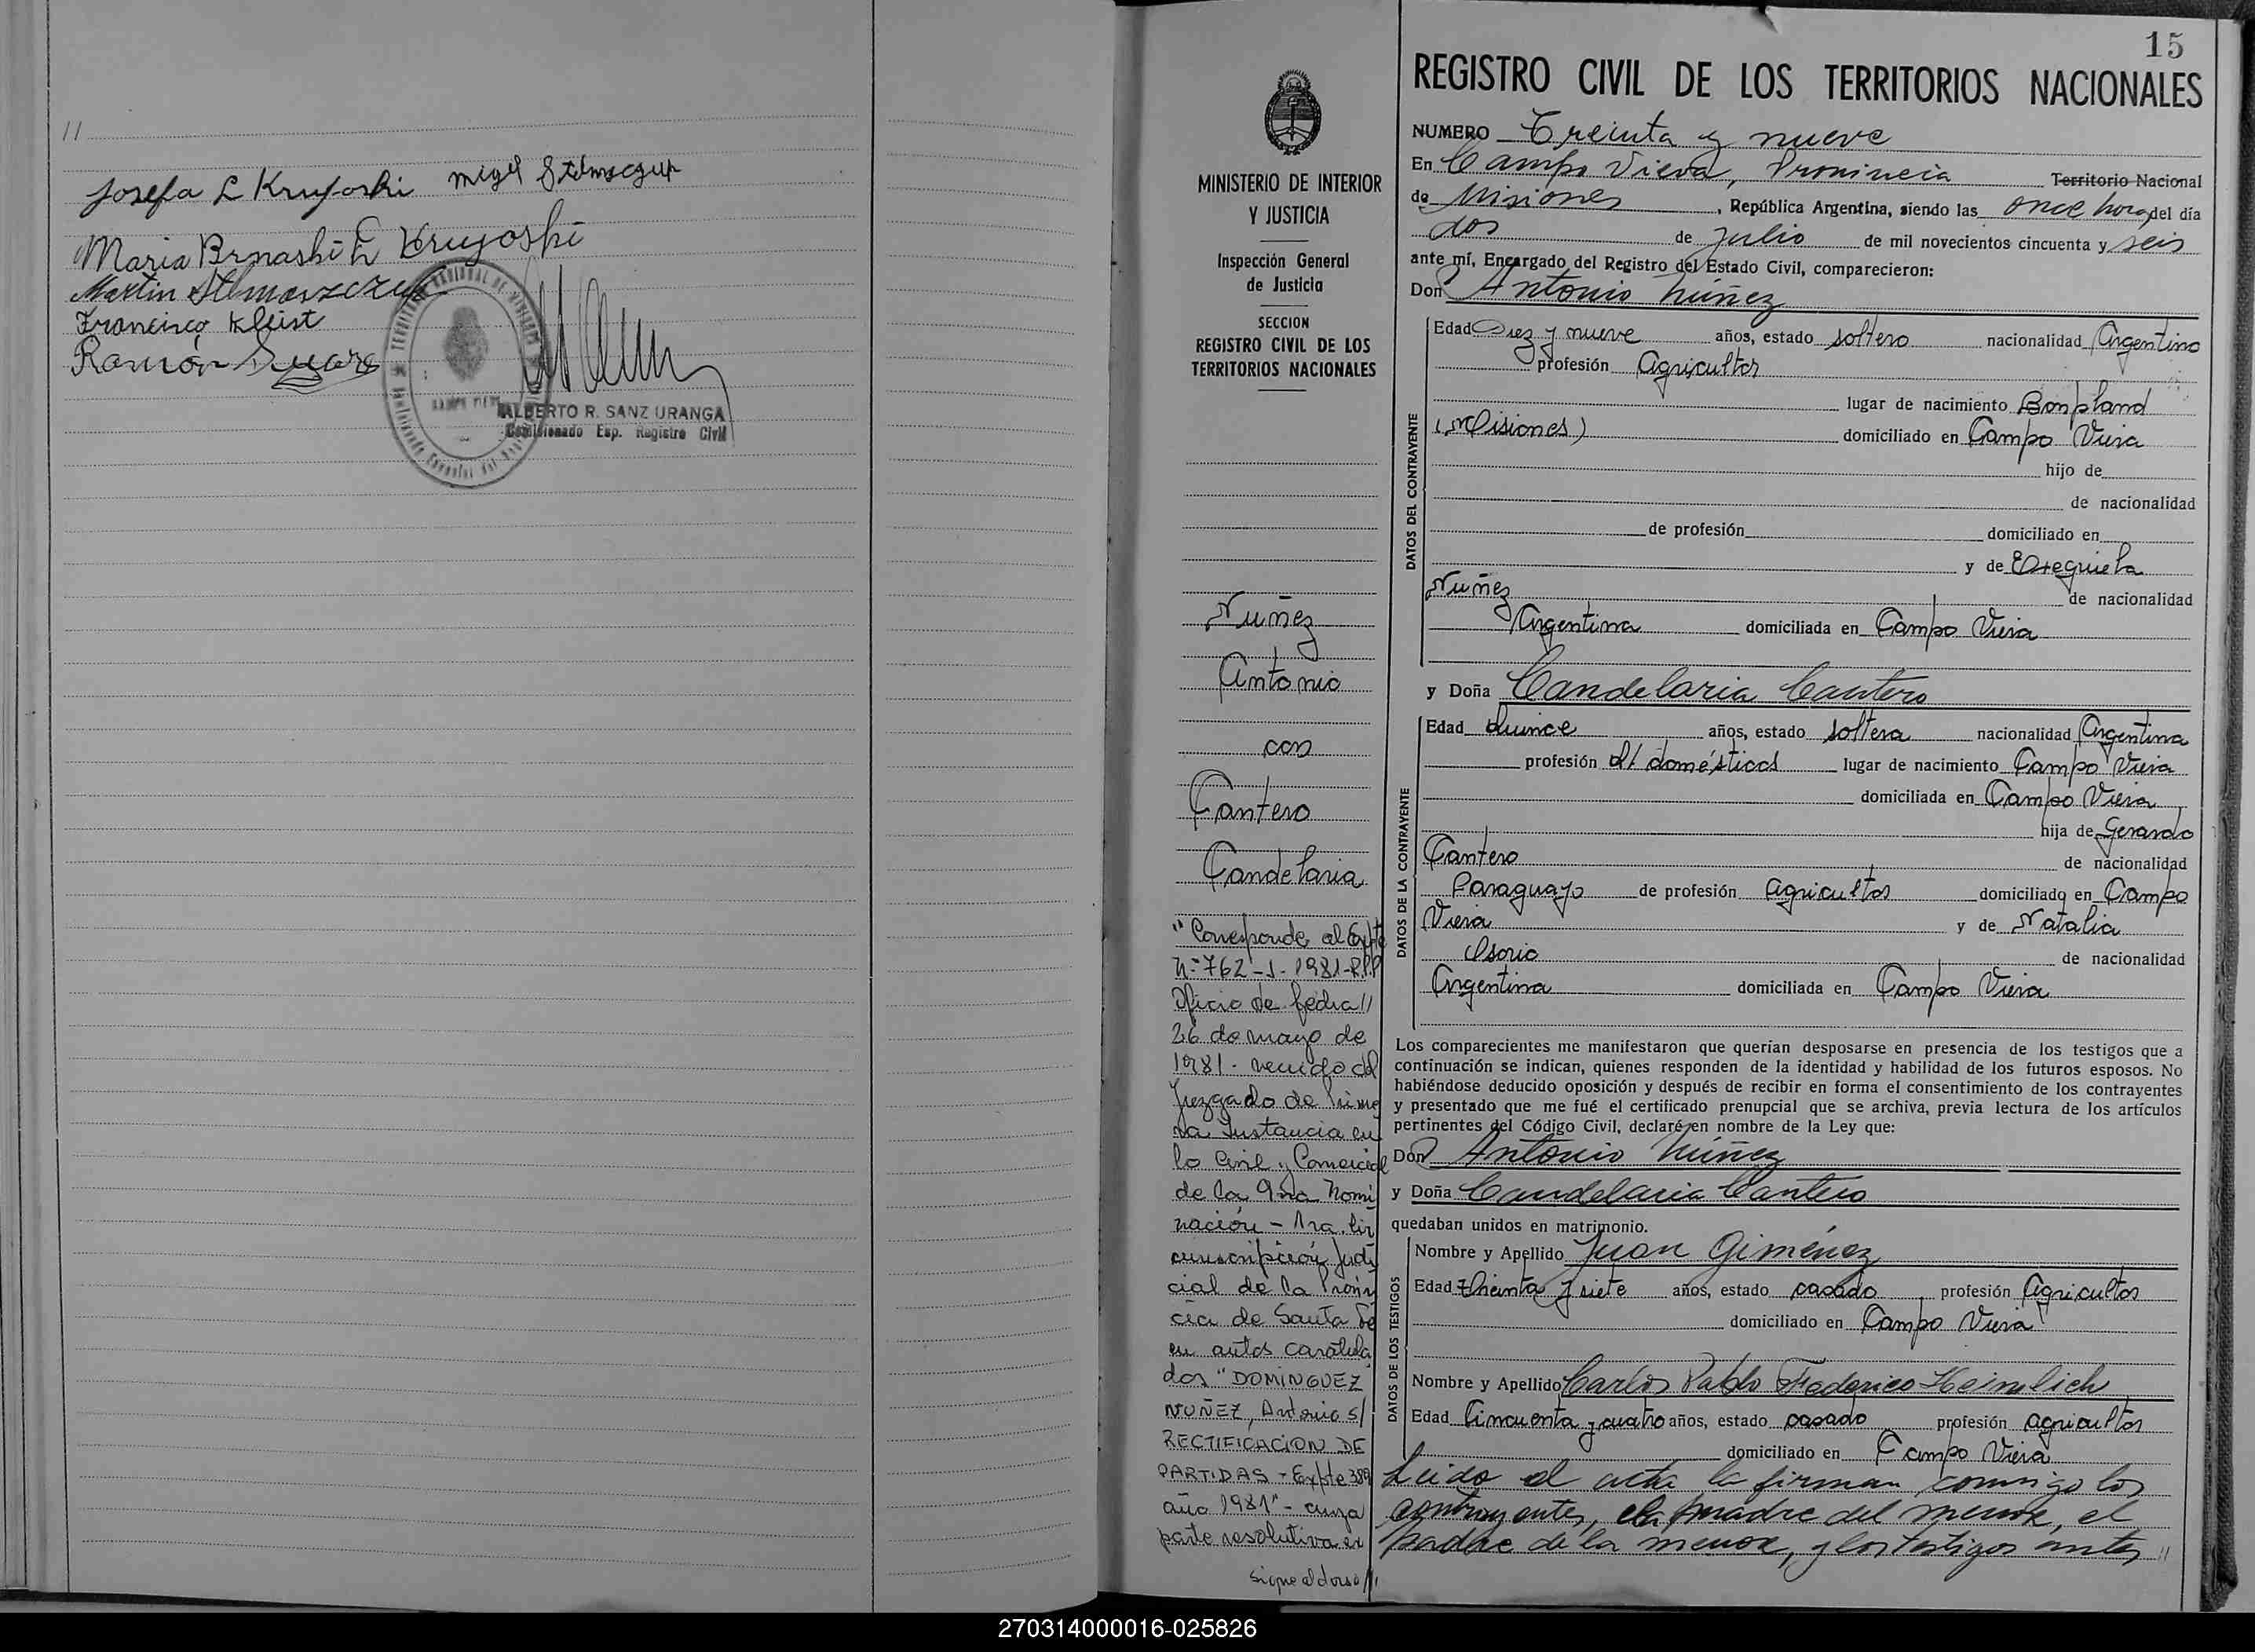 //
Josefa L Kruyoski
Maria Brnashik L Kruyoski
Francisco Kleist
Ramón
ALBERTO R. SANZ URANGA
Comisionado Esp. Registro Civil
15
MINISTERIO DE INTERIOR
Y JUSTICIA
Inspección General
de Justicia
SECCION
REGISTRO CIVIL DE LOS
TERRITORIOS NACIONALES
Nuñez
Antonio
con
Cantero
Candelaria
"Corresponde al Expte
Nº 762-J-1981-R.P.P
Oficio de fecha //
26 de mayo de
1981- venido del
Juzgado de Prime
ra Instancia en
lo Civil y Comercial
de la 9na Nomi
nación - 1ra. Cir
cunscripción Judi
cial de la Provin
cia de Santa Fé
en autos caratula
dos "DOMINGUEZ
NUÑEZ, Antonio s/
RECTIFICACION DE
PARTIDAS - Expte 389
año 1981" - cuya
parte resolutiva es
sigue al dorso //
REGISTRO CIVIL DE LOS TERRITORIOS NACIONALES
NUMERO Treinta y nueve
En Campo Viera, Provincia Territorio Nacional
de Misiones, República Argentina, siendo las once horas del día
dos de Julio de mil novecientos cincuenta y seis
ante mí, Encargado del Registro del Estado Civil, comparecieron:
Don Antonio Núñez
DATOS DEL CONTRAYENTE
Edad Diez y nueve años, estado soltero nacionalidad Argentino
profesión Agricultor
lugar de nacimiento Bonpland
(Misiones) domiciliado en Campo Viera
hijo de
de nacionalidad
de profesión domiciliado en
y de Exequiela
Nuñez de nacionalidad
Argentina domiciliada en Campo Viera
y Doña Candelaria Cantero
DATOS DE LA CONTRAYENTE
Edad Quince años, estado soltera nacionalidad Argentina
profesión q/ domésticos lugar de nacimiento Campo Viera
domiciliada en Campo Viera
hija de Gerardo
Cantero de nacionalidad
Paraguayo de profesión Agricultor domiciliado en Campo
Viera y de Natalia
Osorio de nacionalidad
Argentina domiciliada en Campo Viera
Los comparecientes me manifestaron que querían desposarse en presencia de los testigos que a
continuación se indican, quienes responden de la identidad y habilidad de los futuros esposos. No
habiéndose deducido oposición y después de recibir en forma el consentimiento de los contrayentes
y presentado que me fué el certificado prenupcial que se archiva, previa lectura de los artículos
pertinentes del Código Civil, declaré en nombre de la Ley que:
Don Antonio Núñez
y Doña Candelaria Cantero
quedaban unidos en matrimonio.
DATOS DE LOS TESTIGOS
Nombre y Apellido Juan Giménez
Edad treinta y siete años, estado casado profesión Agricultor
domiciliado en Campo Viera
Nombre y Apellido Carlos Pablo Federico Heimlich
Edad Cincuenta y cuatro años, estado casado profesión agricultor
domiciliado en Campo Viera
Leido el acta la firman conmigo los
contrayentes, la madre del menor, el
padre de la menor, y los testigos antes //
270314000016-025826